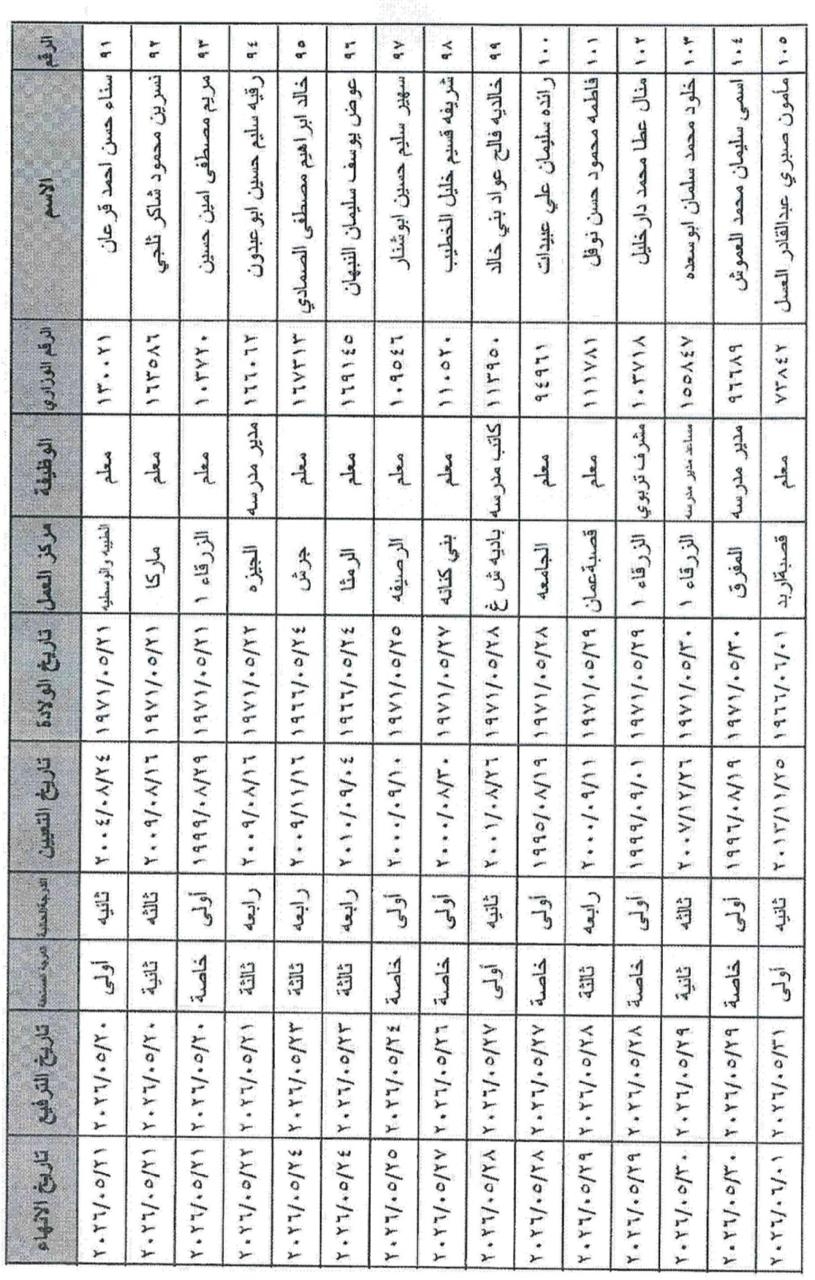 الرقم الاسم الرقم الوزاري الوظيفة مركز العمل تاريخ الولادة تاريخ التعيين تاريخ الترفيع تاريخ الانهاء
٩١ سناء حسن احمد قرعان ١٣٠٠٢١ معلم الطيبه والوسطيه ١٩٧١/٠٥/٢١ ٢٠٠٤/٠٨/٢٤ ثانيه أولى ٢٠٢٦/٠٥/٢٠ ٢٠٢٦/٠٥/٢١
٩٢ نسرين محمود شاكر ثلجي ١٦٣٥٨٦ معلم ماركا ١٩٧١/٠٥/٢١ ٢٠٠٩/٠٨/١٦ ثالثه ثانية ٢٠٢٦/٠٥/٢٠ ٢٠٢٦/٠٥/٢١
٩٣ مريم مصطفى امين حسين ١٠٣٧٢٠ معلم الزرقاء ١ ١٩٧١/٠٥/٢١ ١٩٩٩/٠٨/٢٩ أولى خاصة ٢٠٢٦/٠٥/٢٠ ٢٠٢٦/٠٥/٢١
٩٤ رقيه سليم حسين ابو عبدون ١٦٦٠٦٢ مدير مدرسه الجيزه ١٩٧١/٠٥/٢٢ ٢٠٠٩/٠٨/١٦ رابعه ثالثة ٢٠٢٦/٠٥/٢١ ٢٠٢٦/٠٥/٢٢
٩٥ خالد ابراهيم مصطفى الصمادي ١٦٧٣١٣ معلم جرش ١٩٦٦/٠٥/٢٤ ٢٠٠٩/١١/١٦ رابعه ثالثة ٢٠٢٦/٠٥/٢٣ ٢٠٢٦/٠٥/٢٤
٩٦ عوض يوسف سليمان النبهان ١٦٩١٤٥ معلم الرمثا ١٩٦٦/٠٥/٢٤ ٢٠١٠/٠٩/٠٤ رابعه ثالثة ٢٠٢٦/٠٥/٢٣ ٢٠٢٦/٠٥/٢٤
٩٧ سهير سليم حسين ابوشنار ١٠٩٥٤٦ معلم الرصيفه ١٩٧١/٠٥/٢٥ ٢٠٠٠/٠٩/١٠ أولى خاصة ٢٠٢٦/٠٥/٢٤ ٢٠٢٦/٠٥/٢٥
٩٨ شريفه قسيم خليل الخطيب ١١٠٥٢٠ معلم بني كنانه ١٩٧١/٠٥/٢٧ ٢٠٠٠/٠٨/٣٠ أولى خاصة ٢٠٢٦/٠٥/٢٦ ٢٠٢٦/٠٥/٢٧
٩٩ خالديه فالح عواد بني خالد ١١٣٩٥٠ كاتب مدرسه باديه ش غ ١٩٧١/٠٥/٢٨ ٢٠٠١/٠٨/٢٦ ثانيه أولى ٢٠٢٦/٠٥/٢٧ ٢٠٢٦/٠٥/٢٨
١٠٠ رانده سليمان علي عبيدات ٩٤٩٦١ معلم الجامعه ١٩٧١/٠٥/٢٨ ١٩٩٥/٠٨/١٩ أولى خاصة ٢٠٢٦/٠٥/٢٧ ٢٠٢٦/٠٥/٢٨
١٠١ فاطمه محمود حسن نوفل ١١١٧٨١ معلم قصبةعمان ١٩٧١/٠٥/٢٩ ٢٠٠٠/٠٩/١١ رابعه ثالثة ٢٠٢٦/٠٥/٢٨ ٢٠٢٦/٠٥/٢٩
١٠٢ منال عطا محمد دار خليل ١٠٣٧١٨ مشرف تربوي الزرقاء ١ ١٩٧١/٠٥/٢٩ ١٩٩٩/٠٩/٠١ أولى خاصة ٢٠٢٦/٠٥/٢٨ ٢٠٢٦/٠٥/٢٩
١٠٣ خلود محمد سلمان ابوسعده ١٥٥٨٤٧ مساعد مدير مدرسه الزرقاء ١ ١٩٧١/٠٥/٣٠ ٢٠٠٧/١٢/٢٦ ثالثه ثانية ٢٠٢٦/٠٥/٢٩ ٢٠٢٦/٠٥/٣٠
١٠٤ اسمى سليمان محمد العموش ٩٦٦٨٩ مدير مدرسه المفرق ١٩٧١/٠٥/٣٠ ١٩٩٦/٠٨/١٩ أولى خاصة ٢٠٢٦/٠٥/٢٩ ٢٠٢٦/٠٥/٣٠
١٠٥ مامون صبري عبدالقادر العسل ٧٣٨٤٢ معلم قصبةاربد ١٩٦٦/٠٦/٠١ ٢٠١٣/١١/٢٥ ثانيه أولى ٢٠٢٦/٠٥/٣١ ٢٠٢٦/٠٦/٠١